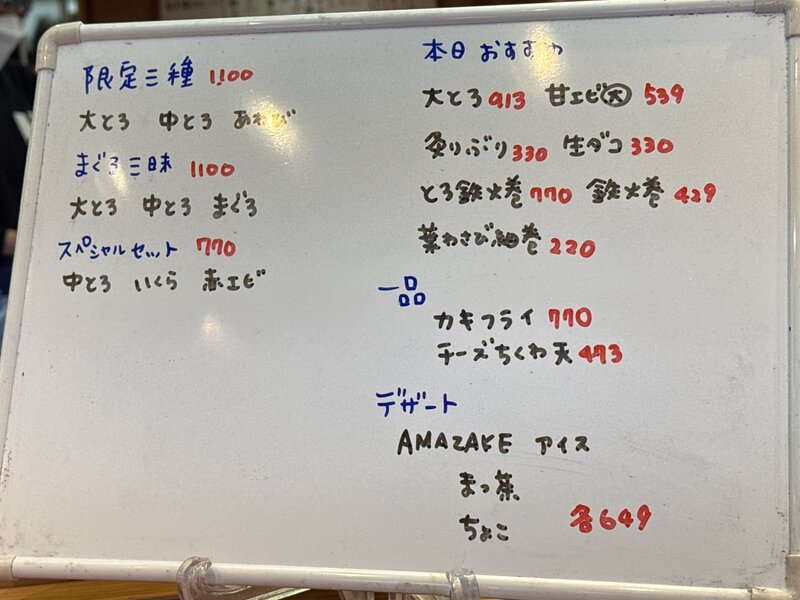 限定三種 1,100
大とろ 中とろ あわび
まぐろ三昧 1100
大とろ 中とろ まぐろ
スペシャルセット 770
中とろ いくら 赤エビ
本日おすすめ
大とろ913 甘エビ大 539
炙りぶり330 生ダコ330
とろ鉄火巻770 鉄火巻429
葉わさび細巻220
一品
カキフライ 770
チーズちくわ天473
デザート
AMAZAKE アイス
まっ茶
ちょこ 各649